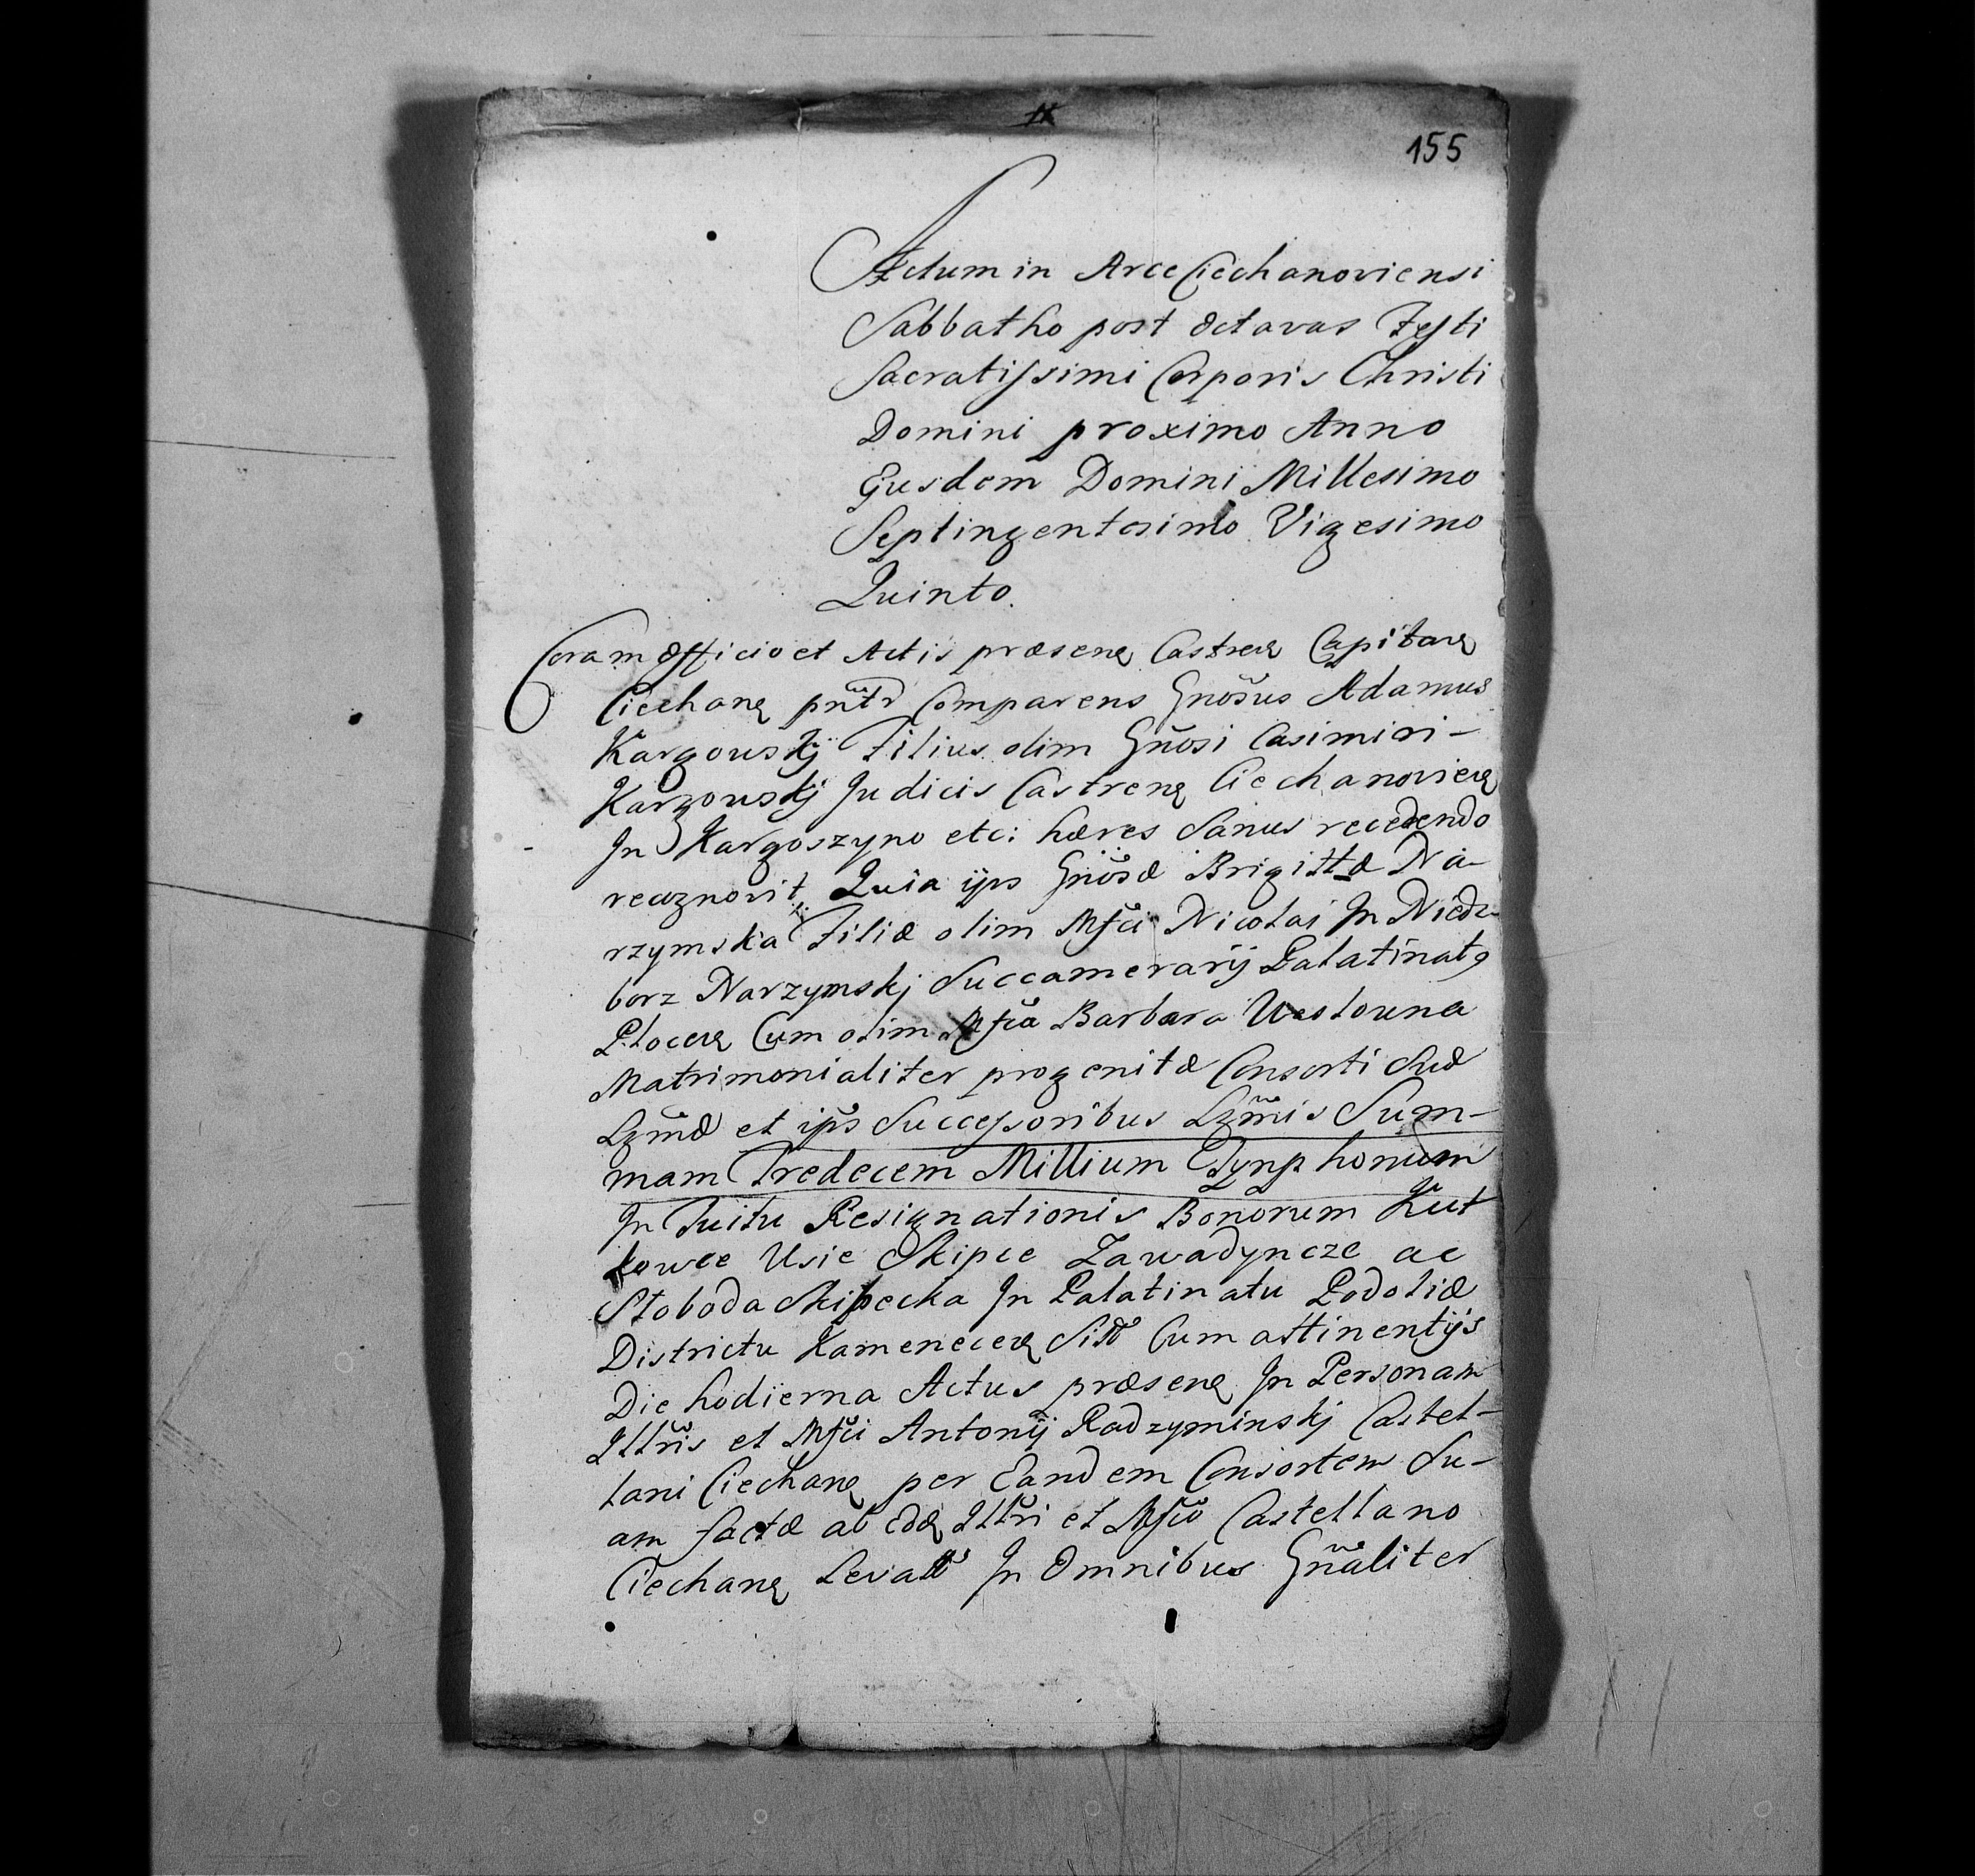 155
Actum in Arce Ciechanoviensi
Sabbatho post Octavas Festi
Sacratissimi Corporis Christi
Domini proximo Anno
Ejusdem Domini Millesimo
Septingentesimo Vigesimo
Quinto.
Coram Officio et Actis præsenę Castreę Capitaę
Ciechanę pñtr Comparens Gnosus Adamus
Kargouskj Filius olim Gnosi Casimiri -
Kargouskj Judicis Castrenę Ciechanovieę
In Kargoszyno etc: hæres Sanus recedendo
recognovit, Quia ips Gnosæ Brigittæ Na-
rzymska Filiæ olim Mfci Nicolai In Niedz-
borz Narzymskj Succamerarij Palatinatq
Ploceę Cum olim Mfca Barbara Weslouna
Matrimonialiter progenitæ Consorti Suæ
Lgmæ et ips Successoribus Lgmis Sum-
mam Tredecem Millium Tynphonum
In Tuitu Resignationis Bonorum Kut
kowce Usie Skipce Zawadyncze ac
Sloboda Skipecka In Palatinatu Podoliæ
Districtu Kameneceę Sitt Cum attinentijs
Die hodierna Actus præsenę In Personam
Illris et Mfci Antonij Radzyminskj Castel-
lani Ciechanę per Eandem Consortem Su-
am factæ ab Edę Illri et Mfco Castellano
Ciechanę Levatt In Omnibus Gñaliter